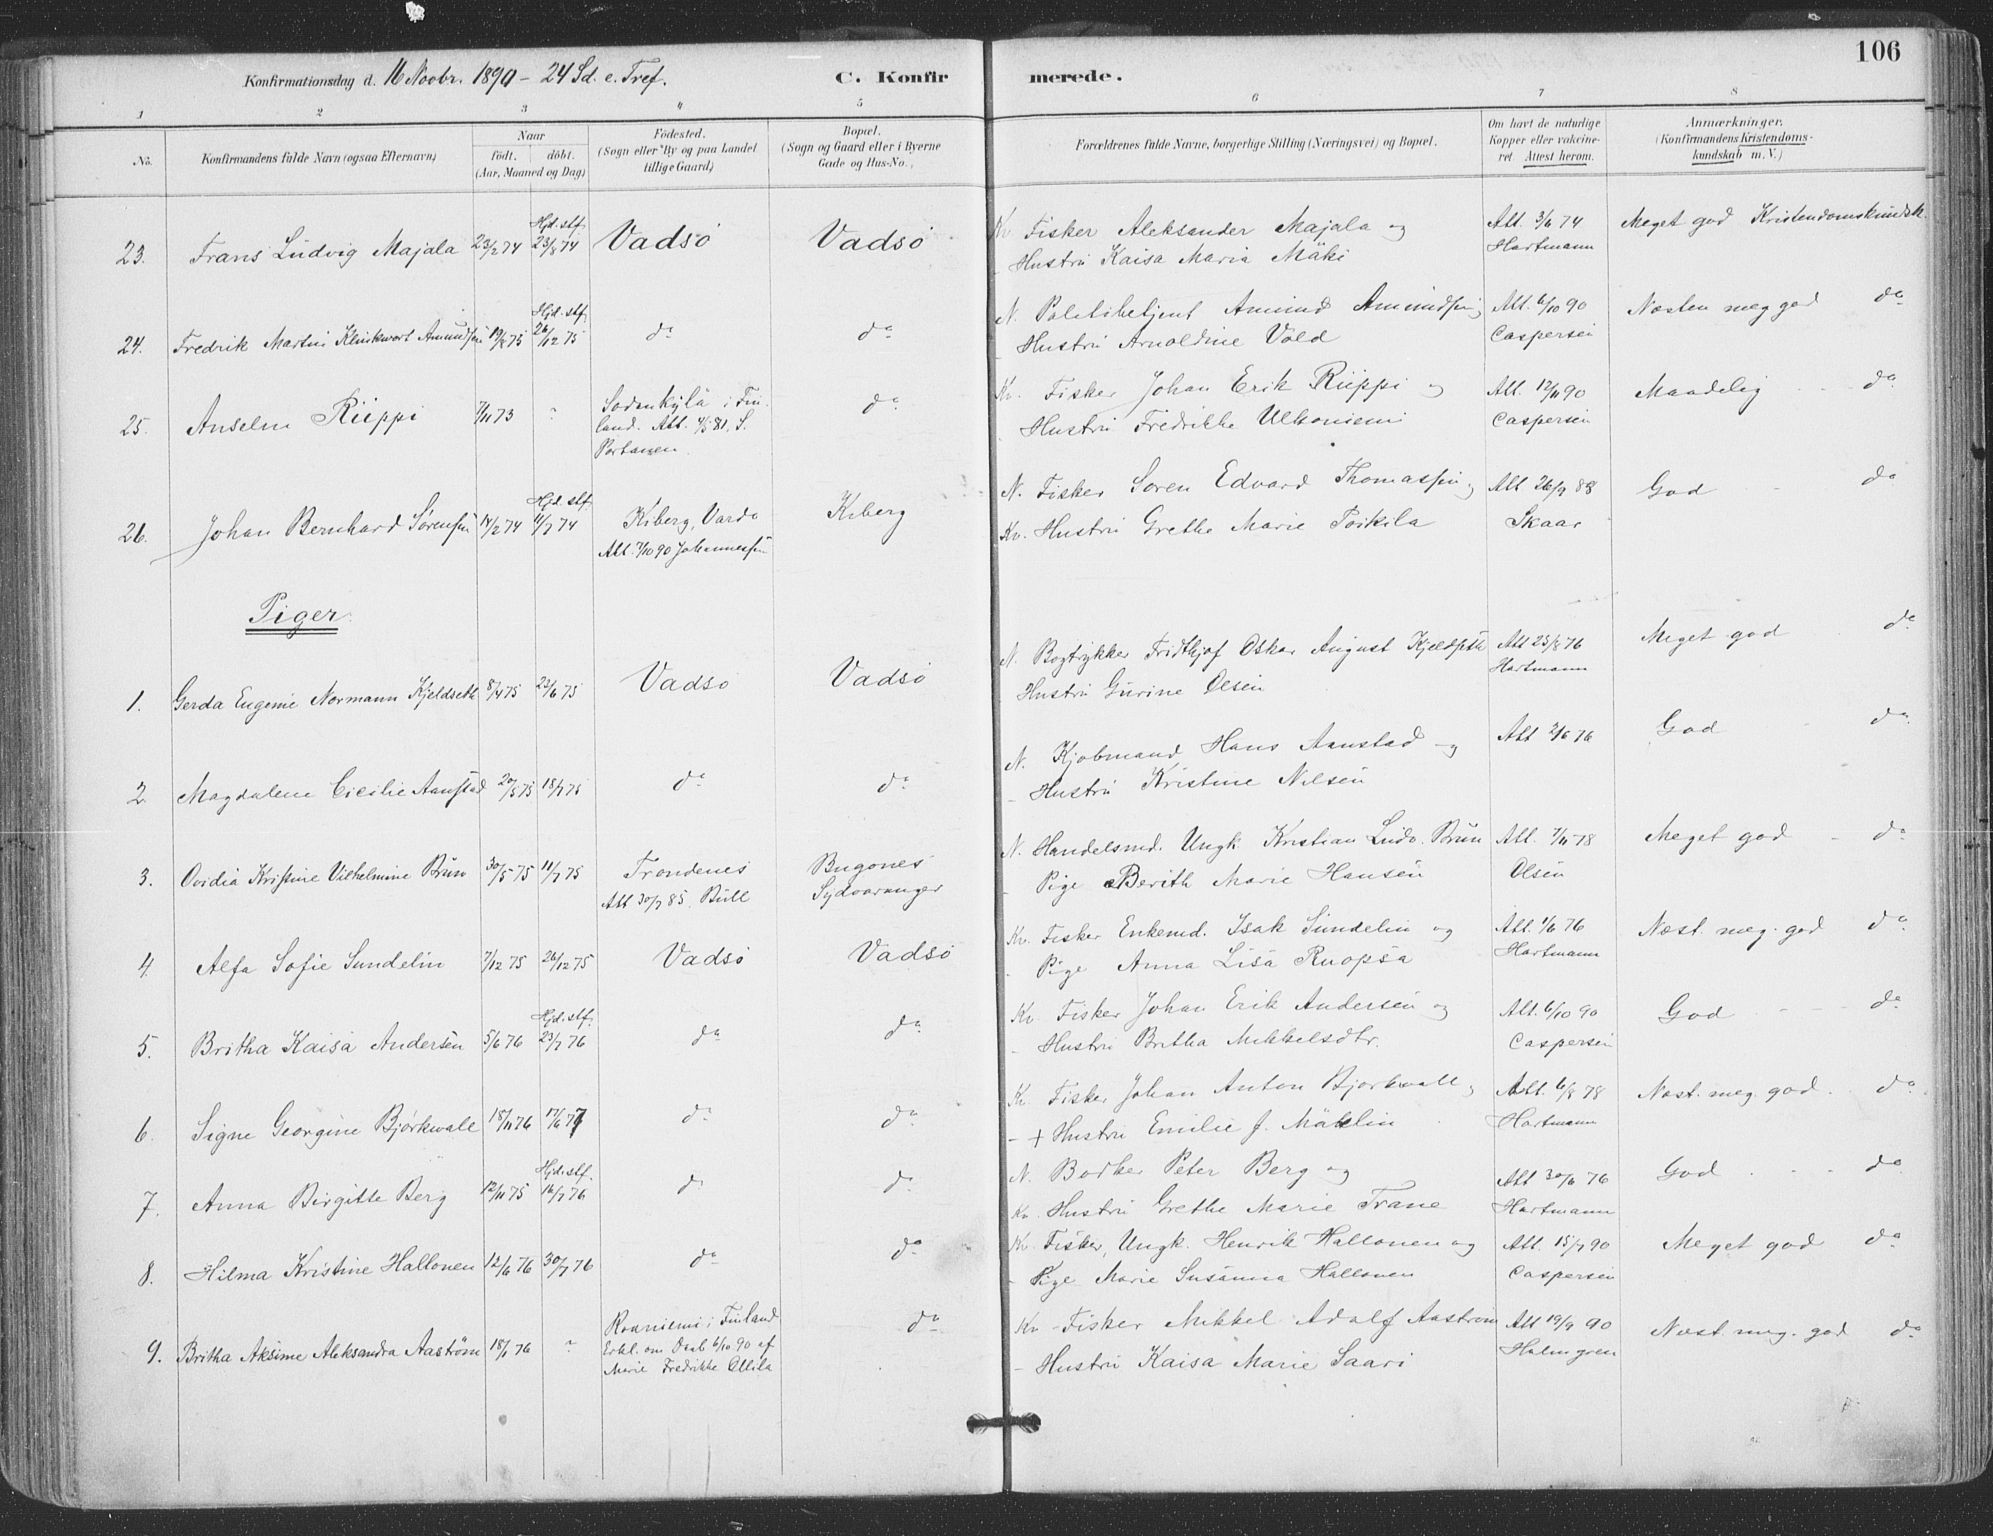 Konfirmationsdag d. 16 Novbr. 1890 - 24 Sd. e. Tref. C. Konfirmerede. 106
1 2 3 4 5 6 7 8
No. Konfirmandens fulde Navn (ogsaa Efternavn) Naar født. døbt. (Aar, Maaned og Dag) Fødested. (Sogn eller By og paa Landet tillige Gaard) Bopæl. (Sogn og Gaard eller i Byerne Gade og Hus-No.) Forældrenes fulde Navne, borgerlige Stilling (Næringsvei) og Bopæl. Om havt de naturlige Kopper eller vakcineret. Attest herom. Anmærkninger. (Konfirmandens Kristendomskundskab m. V.)
23. Frans Ludvig Majala 23/2 74 Hjd. stf. 23/8 74 Vadsö Vadsö Kv. Fisker Aleksander Majala og Att. 3/6 74 Meget god Kristendomskundsk.
- Hustru Kaisa Maria Mäki Hartmann
24. Fredrik Martin Klinkwort Amundsen 19/8 75 Hjd. stf. 26/12 75 do do N. Politibetjent Amund Amundsen Att. 6/10 90 Næsten meg god do
Hustru Arnoldine Vold Caspersen
25. Anselm Riippi 7/11 73 " Sodankylä i Finland. Att. 4/5 81. S. Portanen do Kv. Fisker Johan Erik Riippi og Att. 12/11 90 Maadelig - - do
Hustru Fredrikke Ulkoniemi Caspersen
26. Johan Bernhard Sørensen 14/2 74 Hjd. stf. 11/7 74 Kiberg, Vardø Kiberg N. Fisker Søren Edvard Thomassen og Att 26/9 88 God - do
Att. 7/10 90 Johannessen Kv. Hustru Grethe Marie Poikila Skaar
Piger
1. Gerda Eugenie Normann Kjeldseth 8/4 75 23/6 75 Vadsö Vadsö N. Bogtrykker Fridthjof Oskar August Kjeldseth Att 25/8 76 Meget god - do
Hustru Gurine Olsen Hartmann
2. Magdalene Cicilie Aanstad 20/5 75 18/7 75 do do N. Kjøbmand Hans Aanstad og Att 2/6 76 God - do
- Hustru Kristine Nilsen
3. Ovidia Kristine Vilhelmine Brun 30/5 75 11/7 75 Trondenes Bugønes N. Handelsmd. Ungk. Kristian Ludv. Brun Att. 7/11 78 Meget god - do
Att 30/7 85. Bull Sydvaranger - Pige Berith Marie Hansen Olsen
4. Alfa Sofie Sundelin 7/12 75 26/12 75 Vadsö Vadsö Kv. Fisker Enkemd. Isak Sundelin og Att. 1/6 76 Næst. meg. god do
- Pige Anna Lisa Ruopsa Hartmann
5. Britha Kaisa Andersen 5/6 76 Hjd. stf. 23/7 76 do do Kv. Fisker Johan Erik Andersen og Att. 6/10 90 God - - do
- Hustru Britha Mikkelsdtr. Caspersen
6. Signe Georgine Bjørkwall 18/11 76 17/6 77 do do Kv. Fisker Johan Anton Bjørkwall og Att. 6/8 78 Næst. meg. god. do
- + Hustru Emilie J. Mäklin Hartmann
7. Anna Birgitte Berg 12/11 75 Hjd. stf. 16/7 76 do do N. Bødker Peter Berg og Att 30/6 76 God - - do
Kv. Hustru Grethe Marie Trane Hartmann
8. Hilma Kristine Hallonen 12/6 76 30/7 76 do do Kv. Fisker, Ungk. Henrik Hallonen og Att. 15/7 90 Meget god do
- Pige Marie Susanna Hallonen Caspersen
9. Britha Aksime Aleksandra Aaström 18/1 76 " Rovaniemi i Finland do Kv - Fisker Mikkel Adolf Aaström Att 19/9 90 Næst. meg. god do
Erkl. om Daab 6/10 90 af Marie Fredrikke Ollila - Hustru Kaisa Marie Saari Holmgren